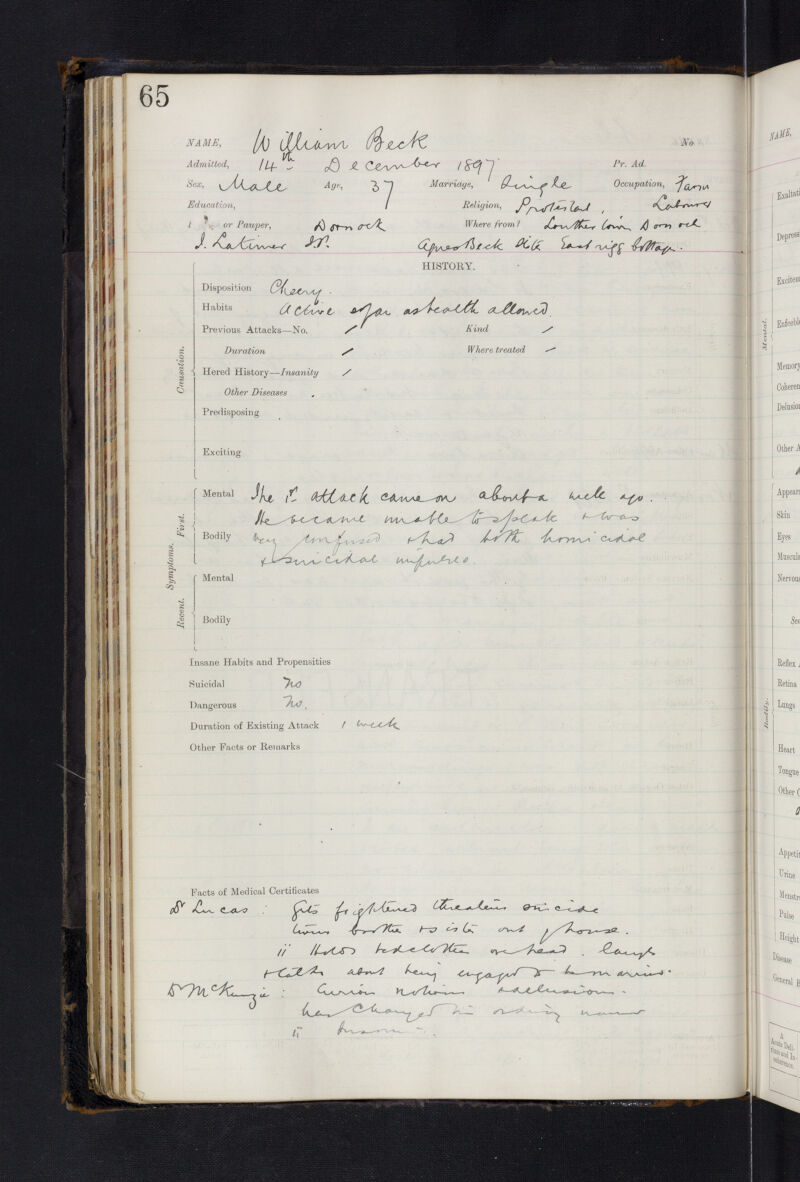 65
NAME, William Beck No
Admitted, 14th December 1897 Pr. Ad.
Sex, Male Age, 37 Marriage, Single Occupation, Farm
Education, Religion, Protestant, Labourer
or Pauper, Dornock Where from? Lowthertown Dornock
J. Latimer I.P. Agnes Beck Sister Eastrigg Cottage.
HISTORY.
Causation.
Disposition Cheery.
Habits Active so far as health allowed.
Previous Attacks—No. / Kind /
Duration / Where treated /
Hered History—Insanity /
Other Diseases
Predisposing
Exciting
Symptoms. First.
Mental The 1st attack came on about a week ago.
He became unable to speak & was
Bodily very confused & had both homicidal
& suicidal impulses.
Recent.
Mental
Bodily
Insane Habits and Propensities
Suicidal No
Dangerous No.
Duration of Existing Attack 1 week
Other Facts or Remarks
Facts of Medical Certificates
Dr Lucas : Gets frightened threatens suicide
turns brother & sister out of house.
ii Holds bedclothes over head. laughs
& talks about being engaged to be married.
Dr McKenzie : Curious notions & delusions.
has changed in
ii
NAME,
Mental.
Exaltati
Depress
Excitem
Enfeeble
Memory
Coheren
Delusion
Other A
Bodily.
Appeara
Skin
Eyes
Muscula
Nervous
Sen
Reflex A
Retina
Lungs
Heart
Tongue
Other O
Appetit
Urine
Menstr
Pulse
Height
Disease
General B
A
Acute Deli-
rious and In-
coherence.